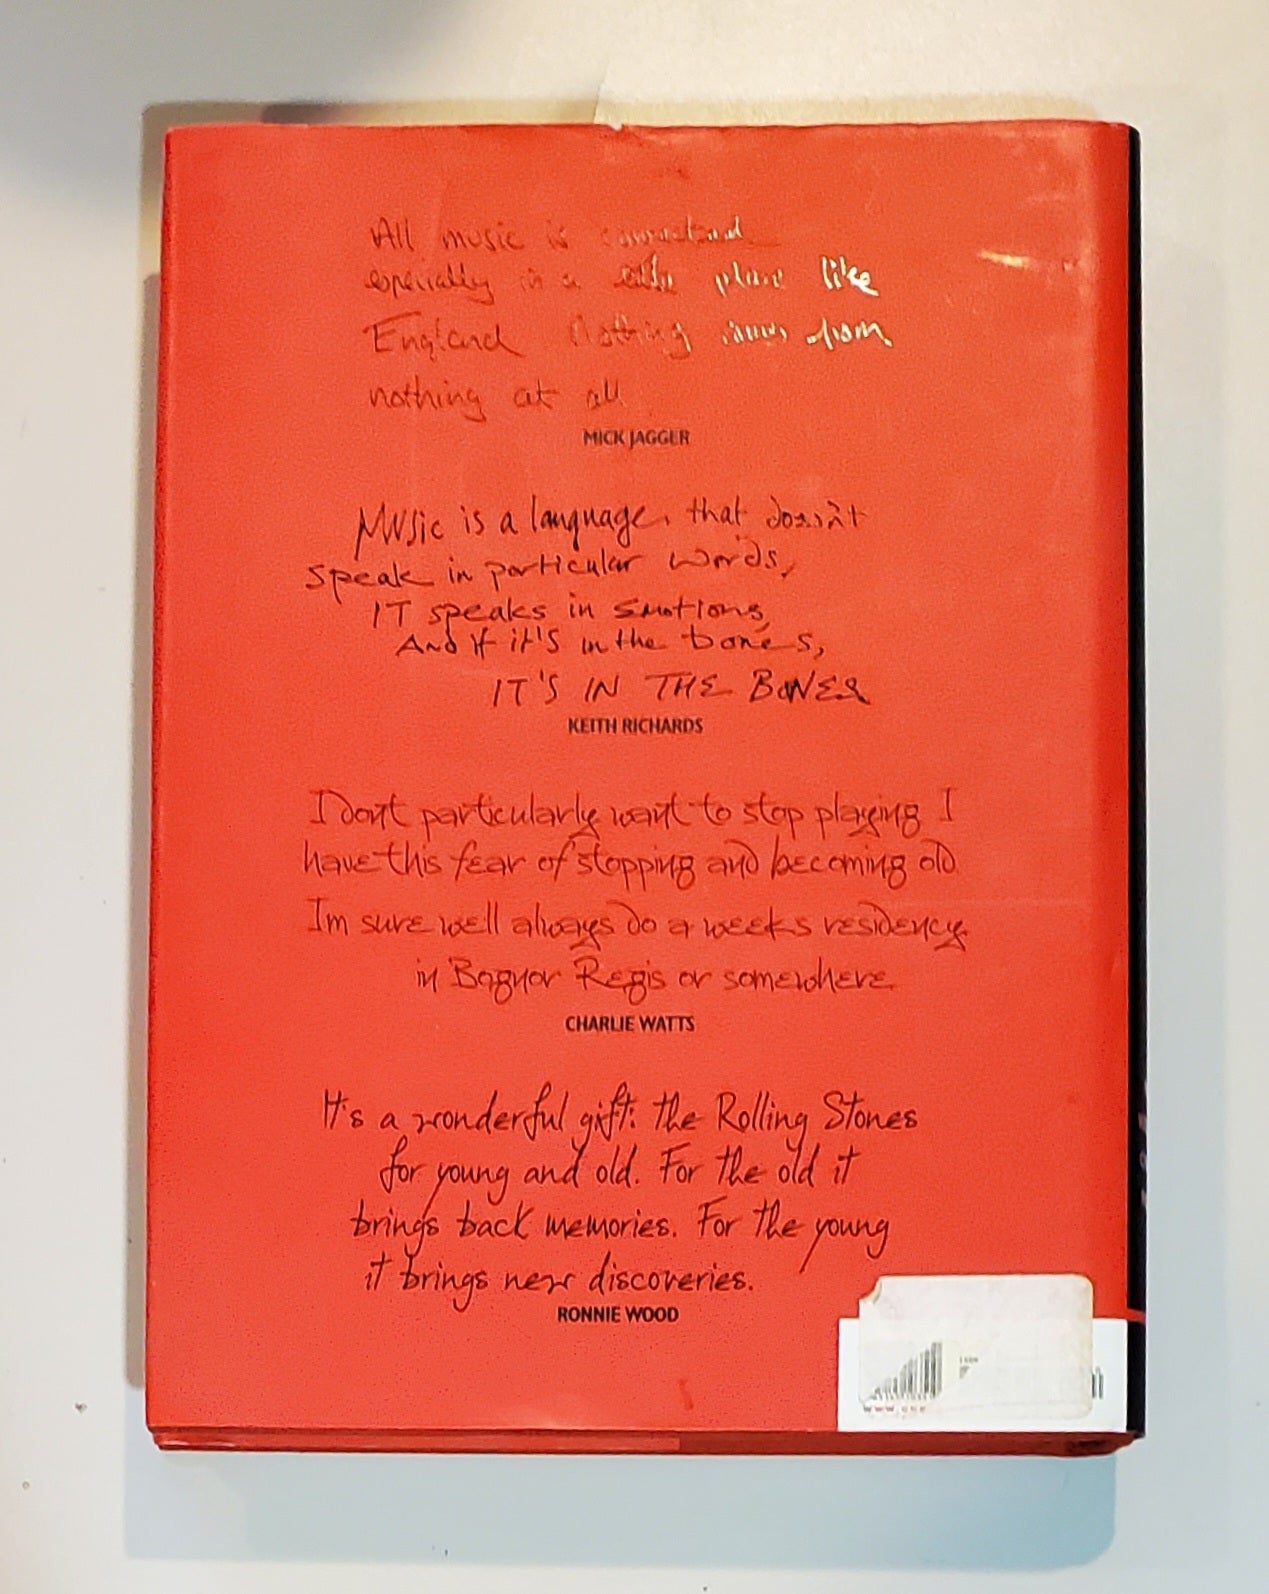 All music is connected
especially in a little place like
England Nothing comes from
nothing at all
MICK JAGGER
Music is a language, that doesn't
speak in particular words,
IT speaks in Emotions,
And if it's in the bones,
IT'S IN THE BONES
KEITH RICHARDS
I dont particularly want to stop playing I
have this fear of stopping and becoming old.
Im sure well always do a weeks residency
in Bognor Regis or somewhere.
CHARLIE WATTS
It's a wonderful gift: the Rolling Stones
for young and old. For the old it
brings back memories. For the young
it brings new discoveries.
RONNIE WOOD